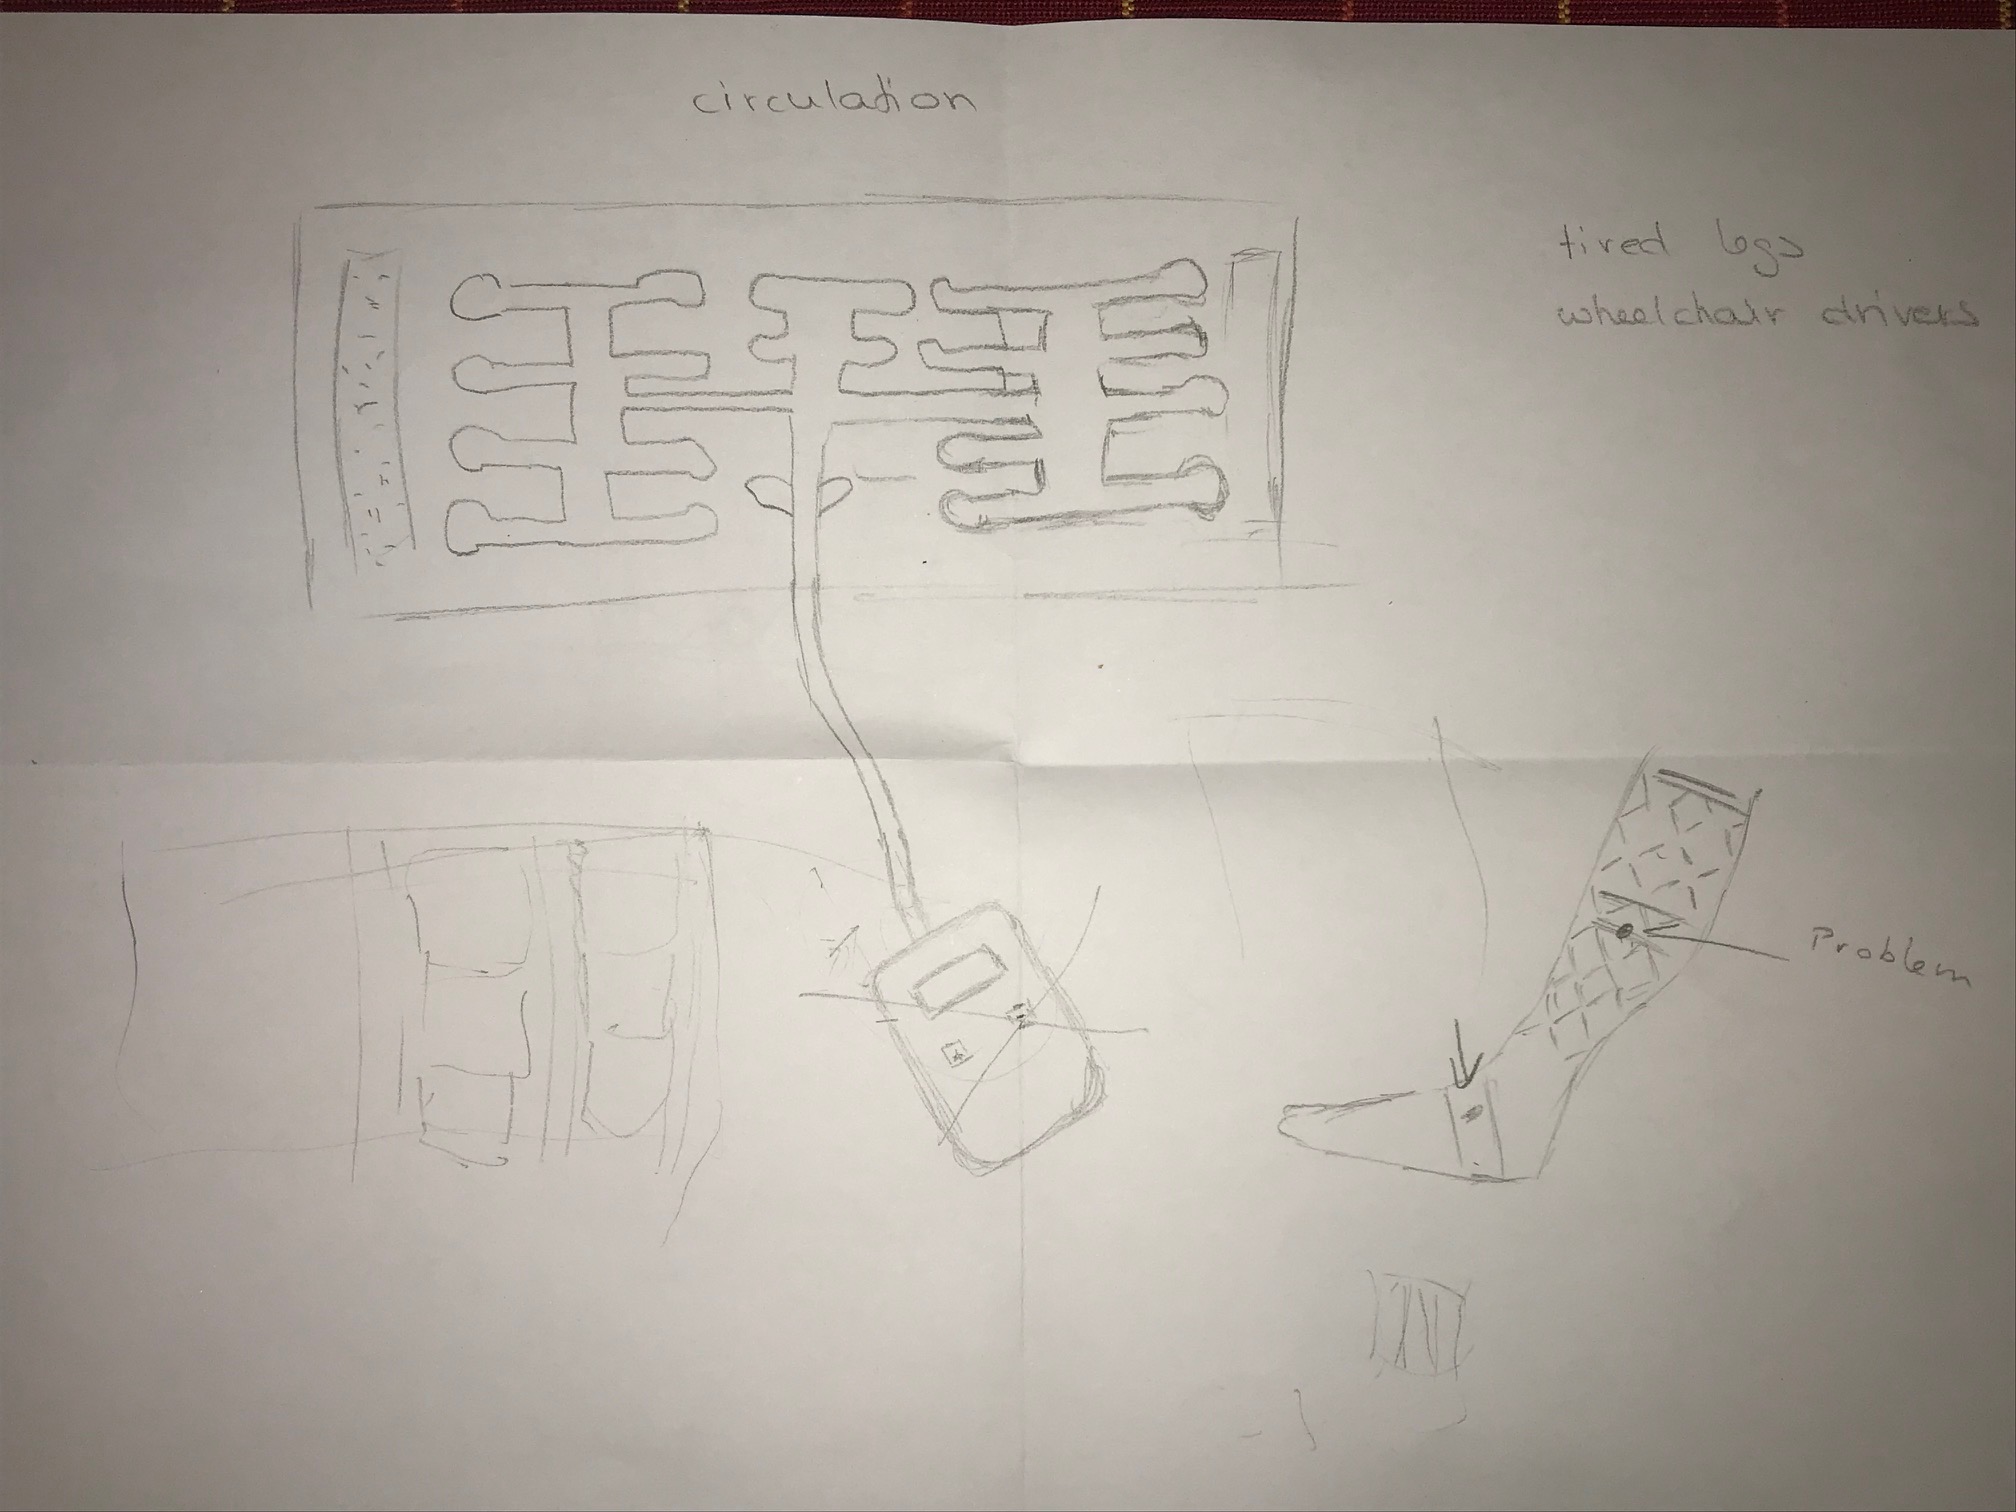 circulation
tired legs
wheelchair drivers
Problem